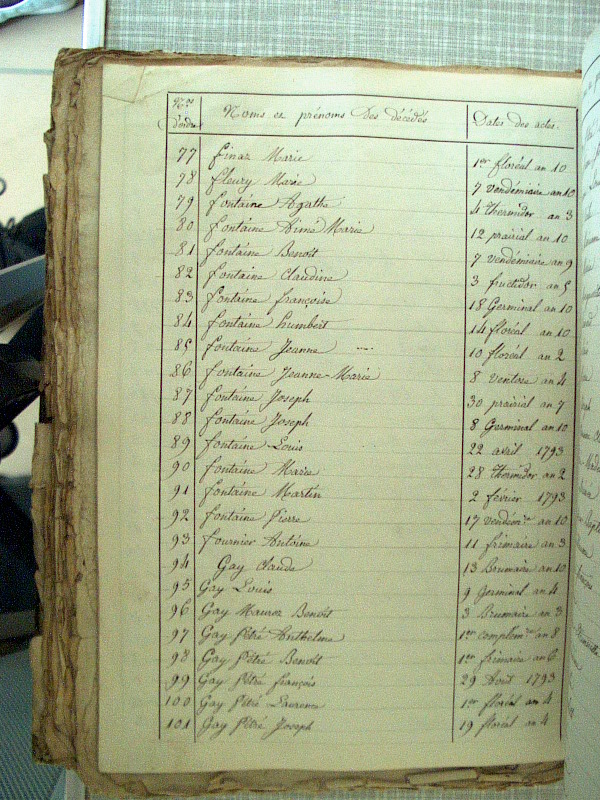 Nos d'ordre Noms et prénoms des décédés Dates des actes.
77 Finaz Marie 1er floréal an 10
78 Fleury Marie 7 vendémiaire an 10
79 Fontaine Agathe 4 thermidor an 3
80 Fontaine Aimé Marie 12 prairial an 10
81 Fontaine Benoît 7 vendémiaire an 9
82 Fontaine Claudine 3 fructidor an 5
83 Fontaine françoise 18 Germinal an 10
84 Fontaine humbert 14 floréal an 10
85 Fontaine Jeanne 10 floréal an 2
86 Fontaine Jeanne-Marie 8 ventose an 4
87 Fontaine Joseph 30 prairial an 7
88 Fontaine Joseph 8 Germinal an 10
89 Fontaine Louis 22 avril 1793
90 Fontaine Marie 28 thermidor an 2
91 Fontaine Martin 2 février 1793
92 Fontaine Pierre 17 vendémre an 10
93 Fournier Antoine 11 frimaire an 3
94 Gay Claude 13 Brumaire an 10
95 Gay Louis 9 Germinal an 4
96 Gay Mauroz Benoît 3 Brumaire an 3
97 Gay Pétré Anthelme 1er complemre an 8
98 Gay Pétré Benoît 1er frimaire an 6
99 Gay Pétré françois 29 Août 1793
100 Gay Pétré Laurence 1er floréal an 4
101 Gay Pétré Joseph 19 floréal an 4